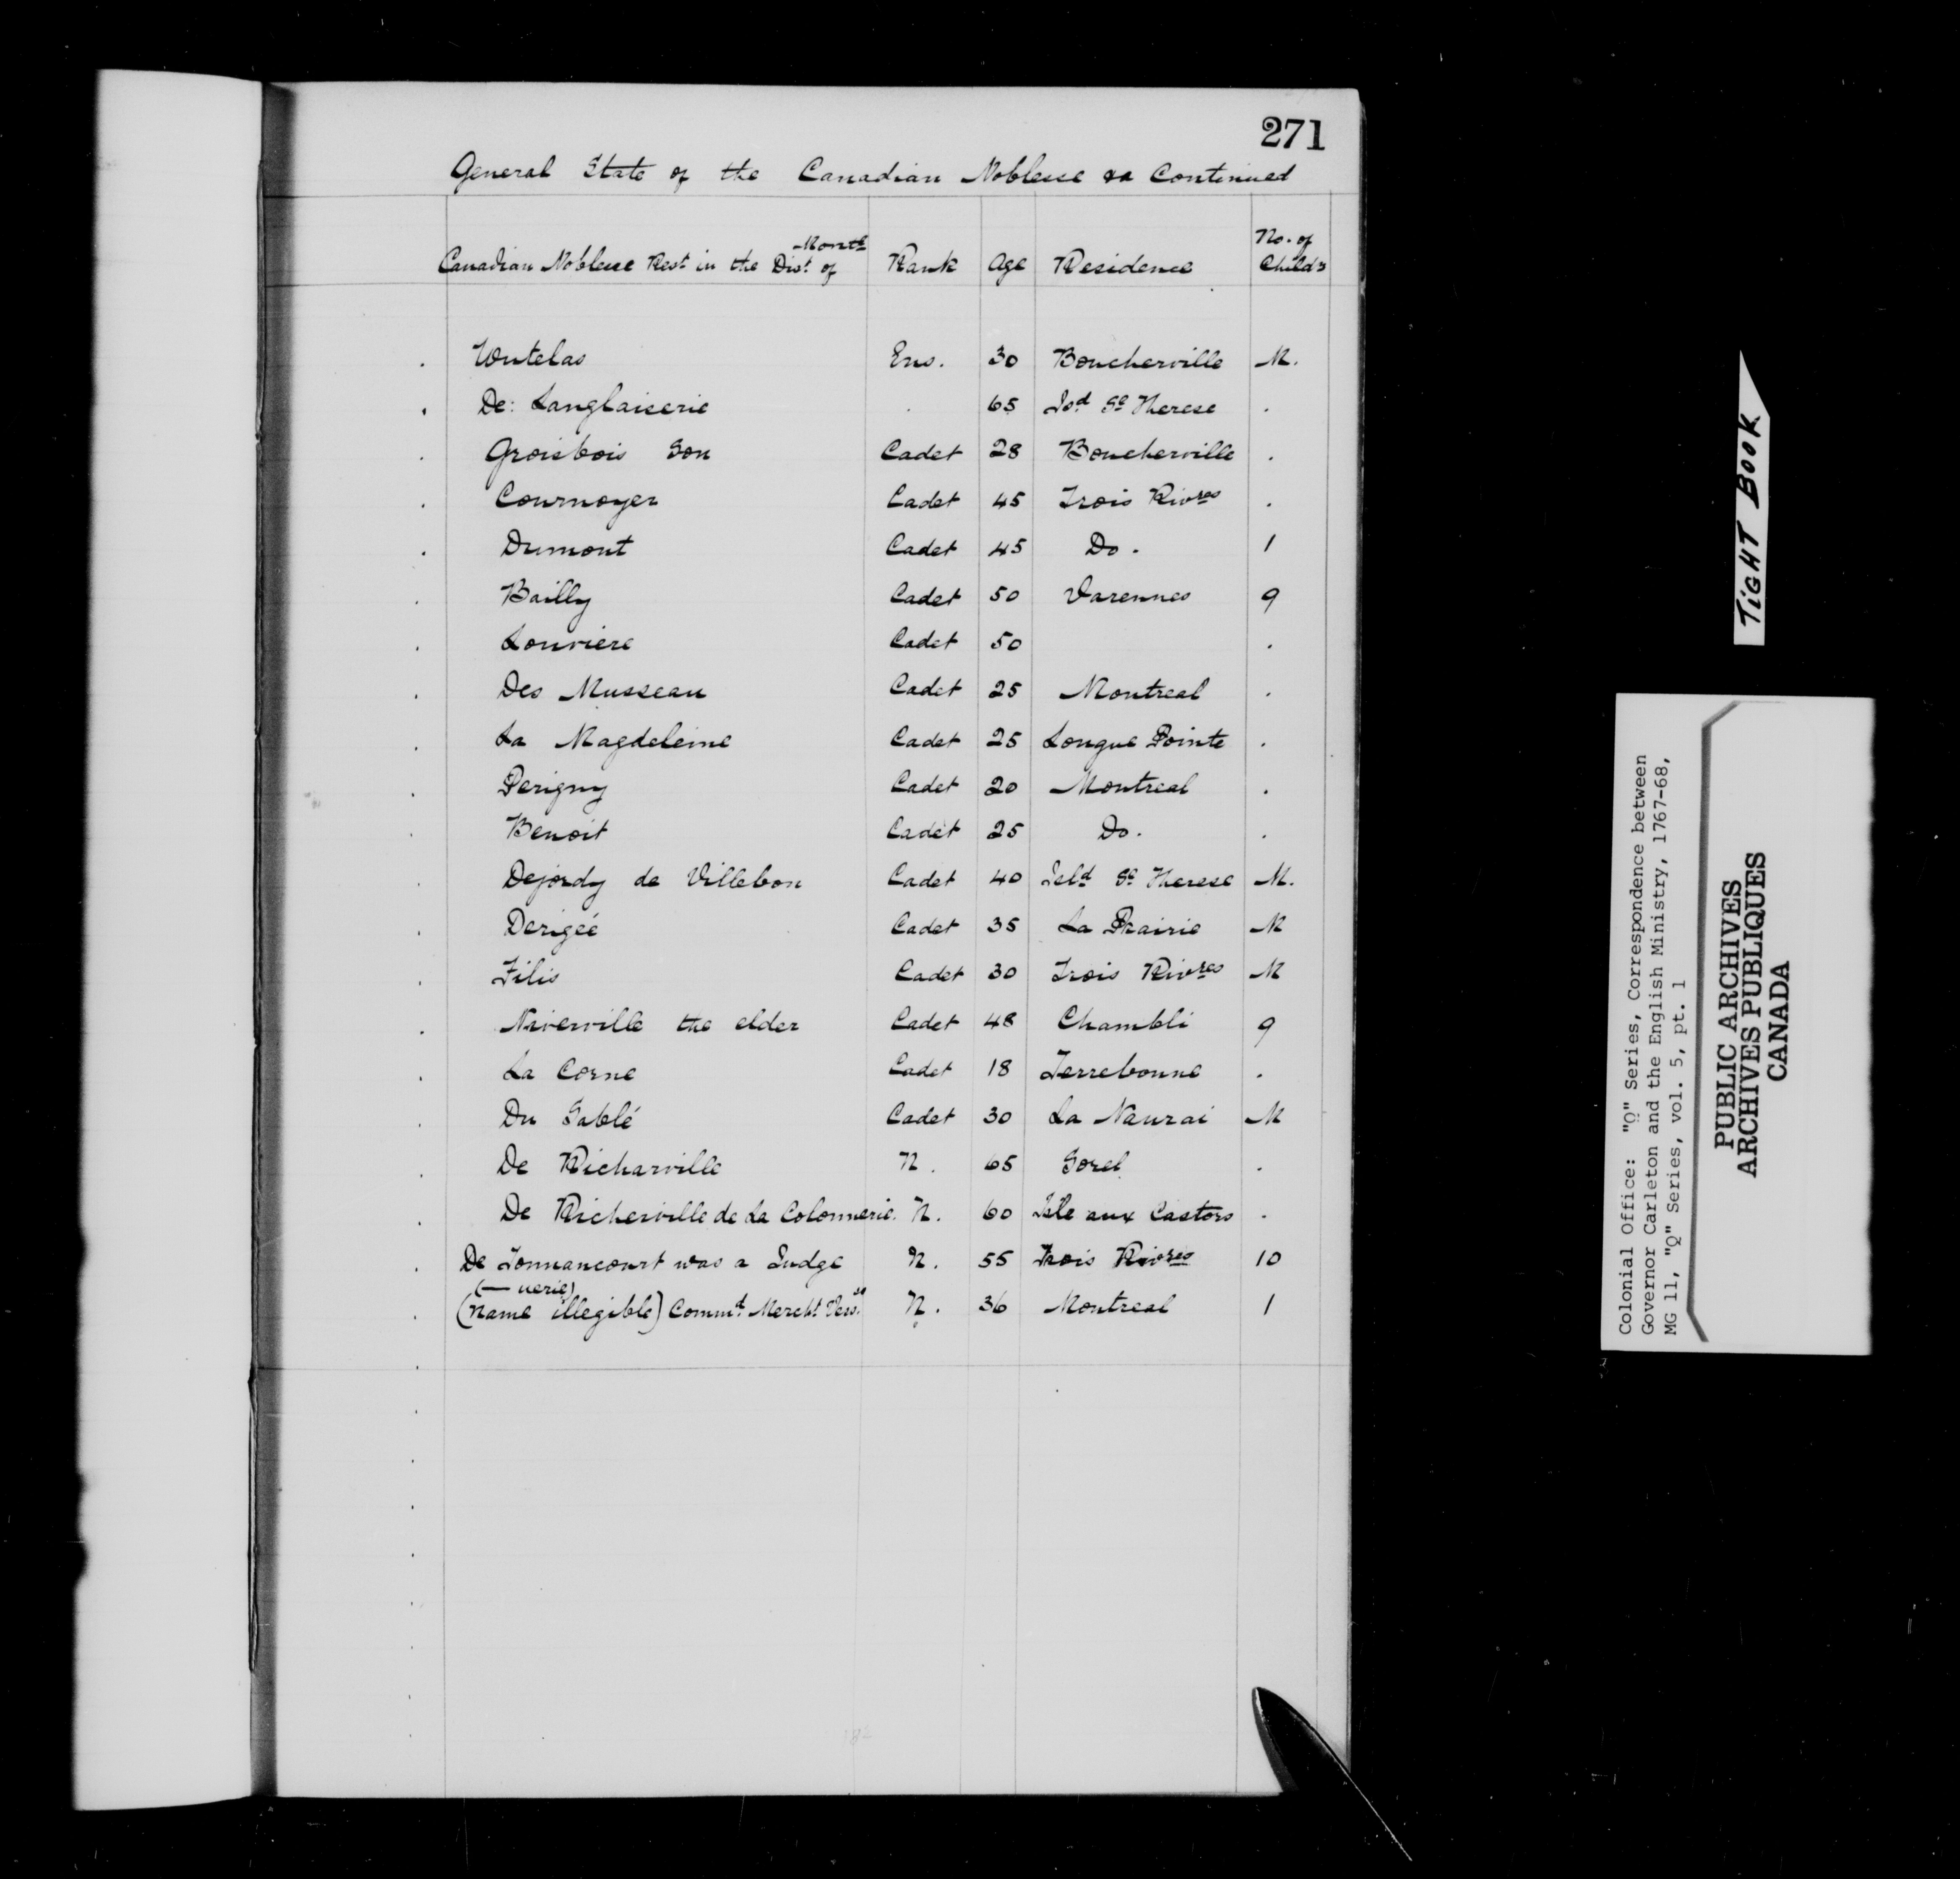 271
General State of the Canadian Noblesse &a Continued
Canadian Noblesse Rest in the Dist. of Montl Rank Age Residence No. of Childn
Wutelas Ens. 30 Boucherville M.
De: Langlaiserie . 65 Isd Se Therese .
Groisbois Son Cadet 28 Boucherville .
Cournoyer Cadet 45 Trois Rivres .
Dumont Cadet 45 Do. 1
Bailly Cadet 50 Varennes 9
Louviere Cadet 50 .
Des Musseau Cadet 25 Montreal .
La Magdeleine Cadet 25 Longue Pointe .
Perigny Cadet 20 Montreal .
Benoit Cadet 25 Do. .
Dejordy de Villebon Cadet 40 Isld Se Therese M.
Derigée Cadet 35 La Prairie M
Filis Cadet 30 Trois Rivres M
Niverville the elder Cadet 48 Chambli 9
La Corne Cadet 18 Terrebonne .
Du Sablé Cadet 30 La Naurai M
De Richarville N. 65 Sorel .
De Richerville de La Colonnerie. N. 60 Isle aux Castors .
De Tonnancourt was a Judge N. 55 Trois Rivres 10
(— uerie)
(Name illegible) Commd Mercht Vess. N. 36 Montreal 1
TIGHT BOOK
Colonial Office: "Q" Series, Correspondence between
Governor Carleton and the English Ministry, 1767-68,
MG 11, "Q" Series, vol. 5, pt. 1
PUBLIC ARCHIVES
ARCHIVES PUBLIQUES
CANADA